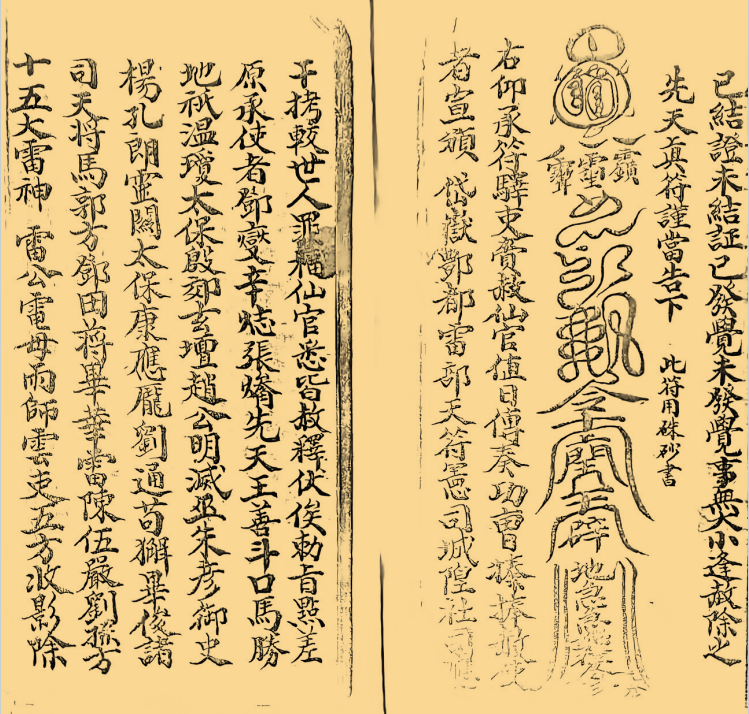 已結證未結証已發覺未發覺事無大小逢赦除之
先天真符謹當告下 此符用硃砂書
右仰承符驛吏賫赦仙官值日傳奏功曹
者宣頒 岱嶽酆都雷部天符憲司城隍社
干拷較世人罪福仙官悉皆赦釋伏俟勅旨點差
原承使者鄧燮辛
張
先天王善斗口馬勝
地祇溫瓊太保殷郊玄壇趙公明滅巫朱彥御史
楊孔朗靈關太保康應龐劉通苟
畢俊諸
司天將馬郭方鄧田蔣畢華雷陳伍嚴劉孫方
十五大雷神 雷公電母雨師雲吏五方收影除